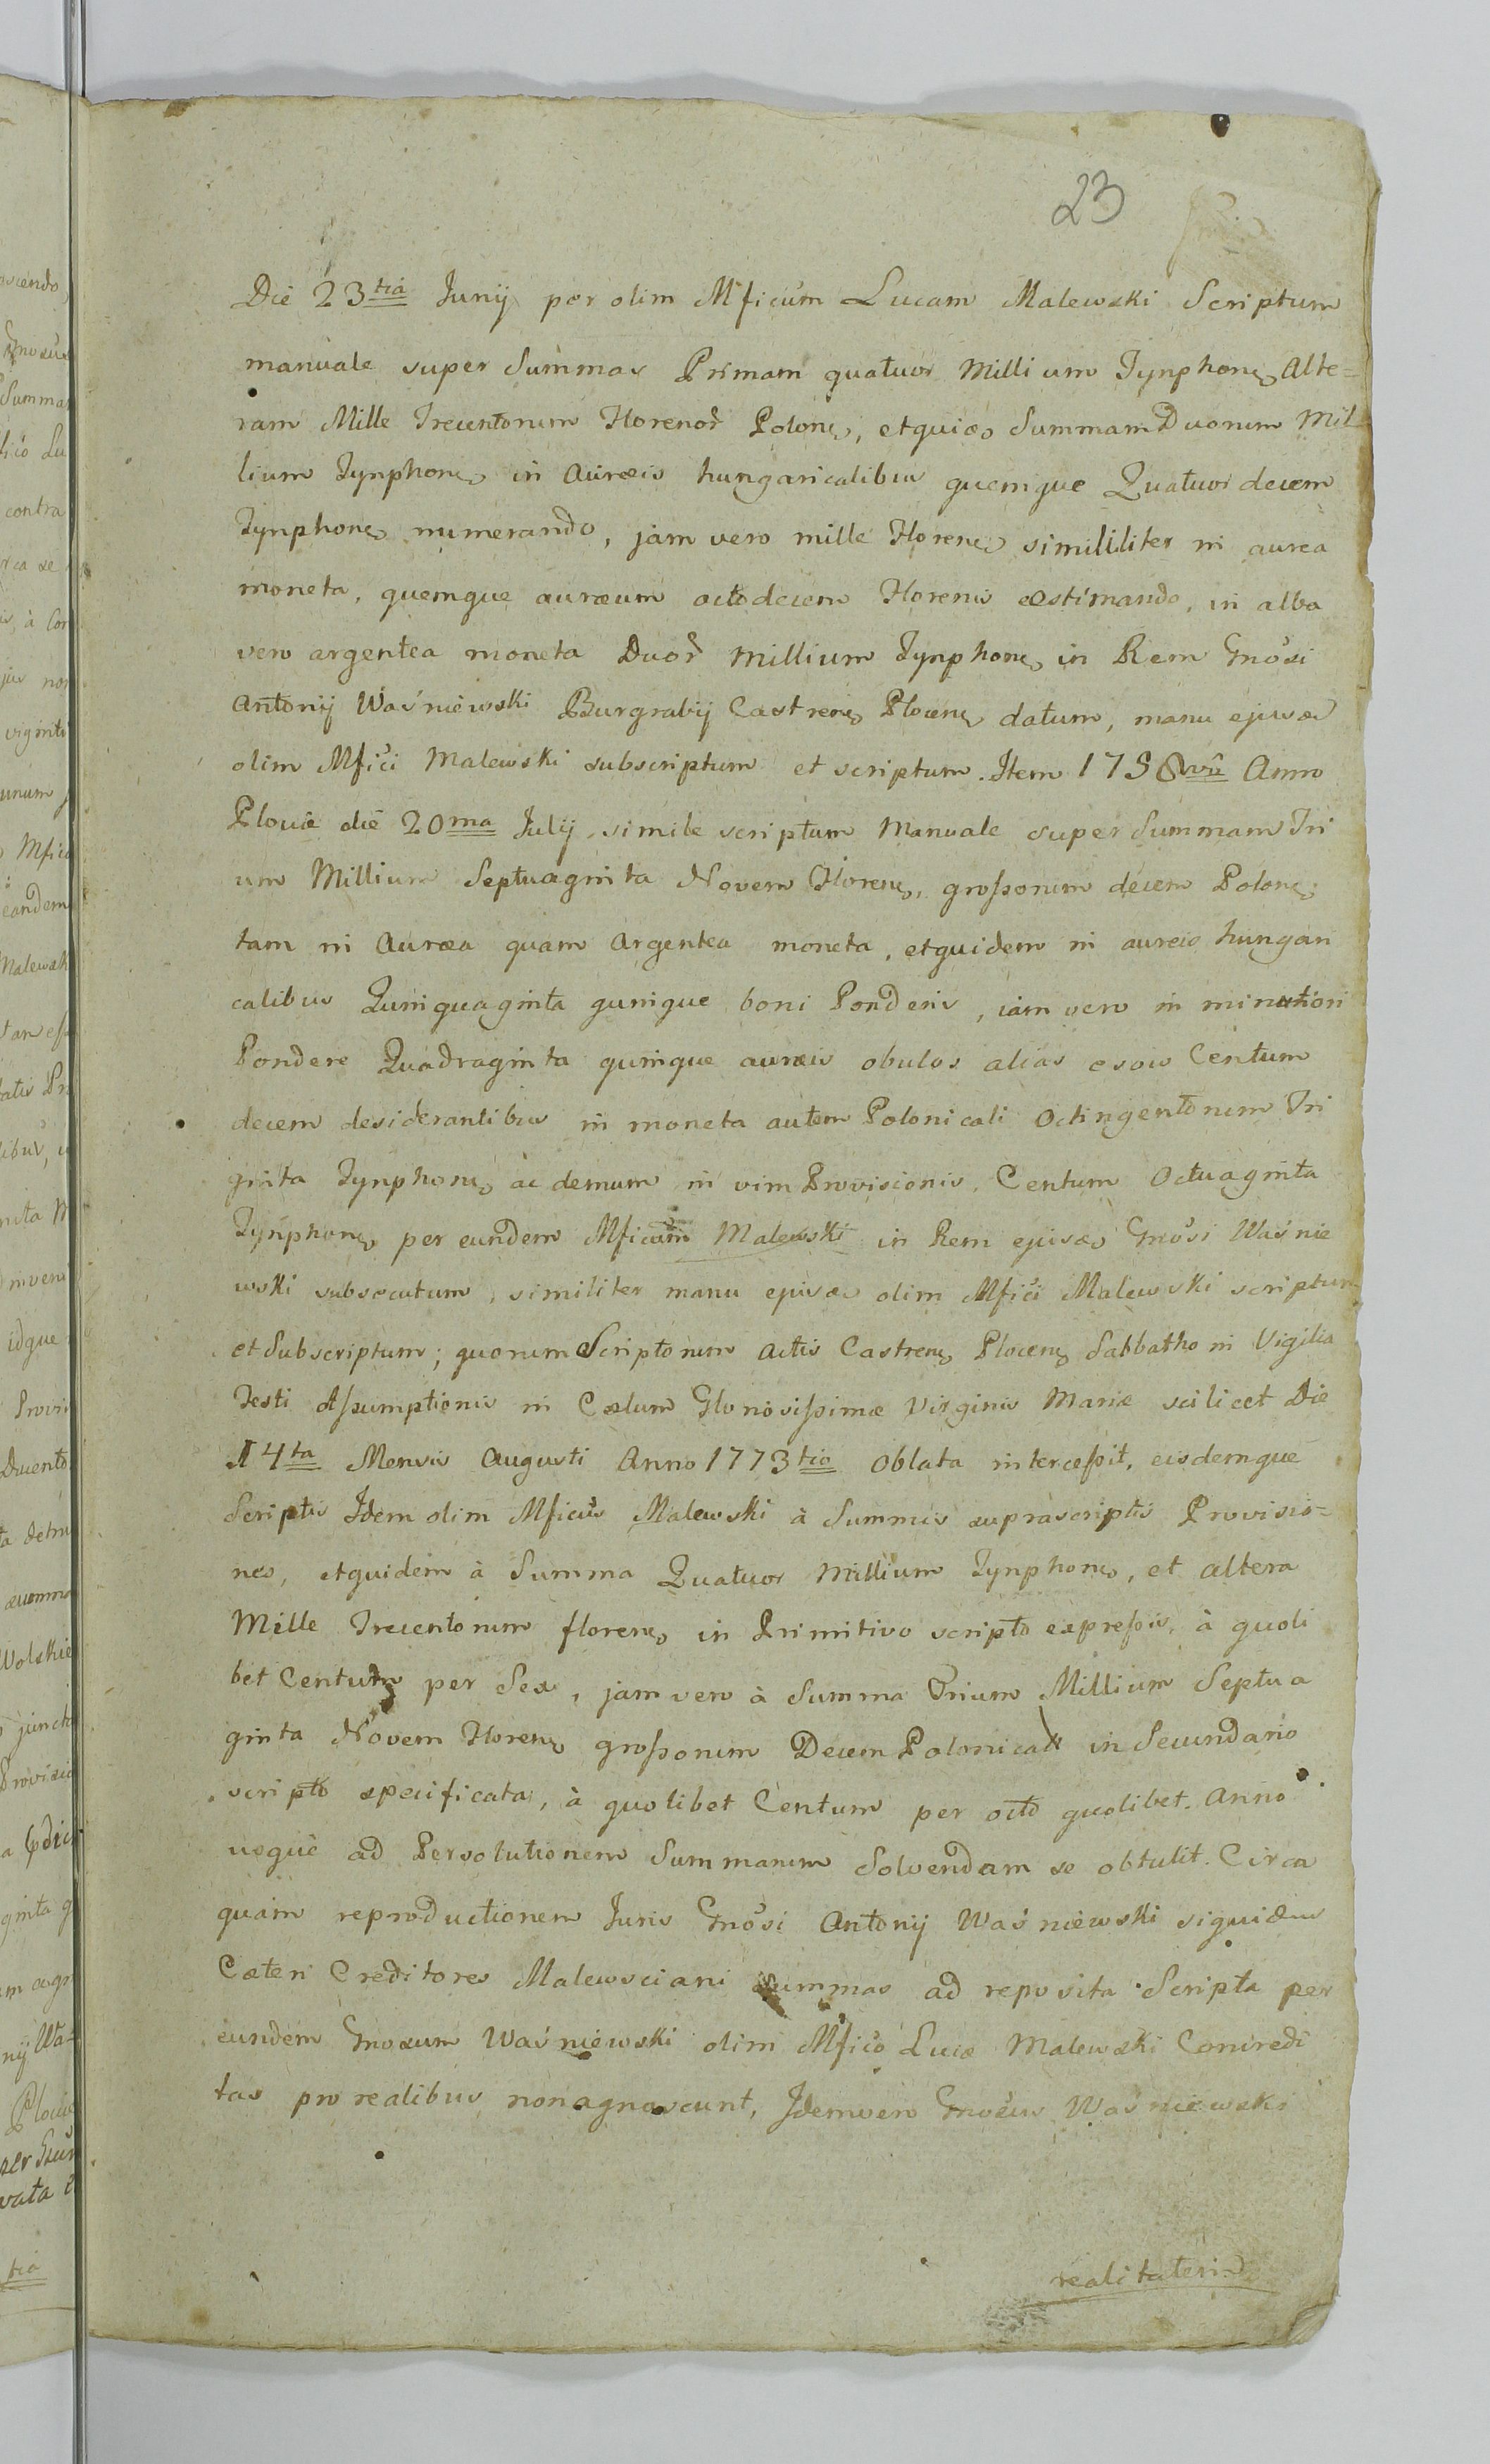 23
Die 23tia Junij per olim Mficum Lucam Malewski Scriptum
manuale super Summas Primam quatuor Millium Tynphon, Alte=
ram Mille Trecentorum Florenor Polon, et quids Summam Duorum Mil-
lium Tynphon, in Aureis hungaricalibus quemque Quatuor decem
Tynphon, numerando, jam vero mille Floren, simililiter in aurea
moneta, quemque auræum octodecem Florenis æstimando, in alba
vero argentea moneta Duor Millium Tynphon, in Rem Gnosi
Antonij Waśniewski Burgrabij Castren, Plocen, datum, manu ejusd
olim Mfici Malewski subscriptum et scriptum. Item 1758vo Anno
Plociæ die 20ma Julij simile scriptum Manuale super Summam Tri
um Millium Septuaginta Novem Floren, grossorum decem Polon,
tam in Auræa quam Argentea moneta, et quidem in aureis hungari
calibus Quinquaginta quinque boni Ponderis, jam vero in minutiori
Pondere Quadraginta quinque auræis obulos alias esois Centum
decem desiderantibus in moneta autem Polonicali Octingentorum Tri
ginta Tynphon, ac demum in vim Provisionis, Centum Octuaginta
Tynphon, per eundem Mficum Malewski in Rem ejusd Gnosi Waśnie
wski subsecutum, similiter manu ejusd olim Mfici Malewski scriptum
et Subscriptum; quorum Scriptorum Actis Castren, Plocen, Sabbatho in Vigilia
Festi Assumptionis in Cælum Gloriosissimæ Virginis Mariæ scilicet Die
14ta Mensis Augusti Anno 1773tio oblata intercessit, eisdemque
Scriptis Idem olim Mficus Malewski à Summis suprascriptis Provisio=
nes, et quidem à Summa Quatuor Millium Tynphon, et altera
Mille Trecentorum floren, in Primitivo scripto expressis, à quoli
bet Centum per Sex, jam vero à Summa Trium Millium Septua
ginta Novem Floren, grossorum Decem Polonical in Secundario
scripto specificata, à quolibet Centum per octo quolibet Anno
usque ad Persolutionem Summarum Solvendam se obtulit. Circa
quam reproductionem Juris Gnosi Antonij Waśniewski siquidem
Cæteri Creditores Malewsciani Summas ad reposita Scripta per
eundem Gnosum Waśniewski olim Mfico Lucæ Malewski Concredi
tas pro realibus non agnoscunt, Idem vero Gnosus Waśniewski
realitatem